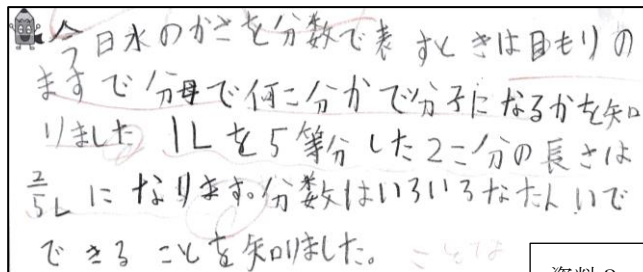 今日水のかさを分数で表すときは目もりの
ますで分母で何こ分かで分子になるかを知
りました 1Lを5等分した2こ分の長さは
2/5L になります。分数はいろいろなたんいで
できることを知りました。